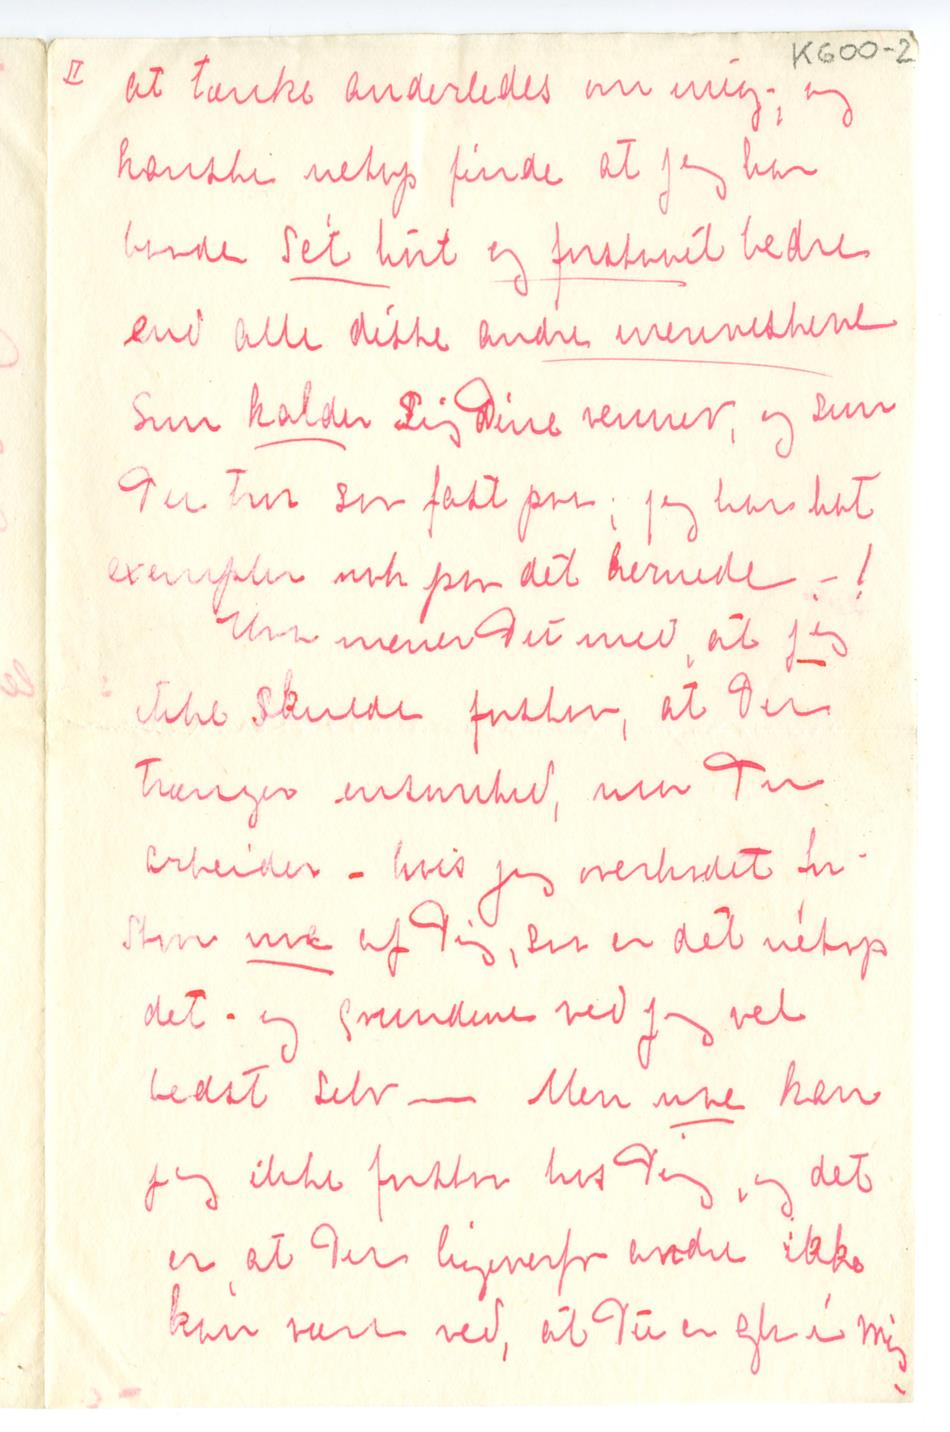 K600-2
II
at tænke anderledes om mig-, og
kanske netop finde at jeg har
baade Sét hört og forstaaet bedre
end alle disse andre menneskene
Som kalder Sig Dine venner, og som
Du tror saa fast paa; jeg har hat
exempler nok paa dét hernede -!
Hva mener Du med, at jeg
ikke Skulde forstaa, at Du
trænger ensomhed, naar Du
arbeider - hvis jeg overhodet for-
staar noe af Dig, saa er dét nétop
det - og grundene ved jeg vel
bedst selv — Men noe kan
jeg ikke forstaa hos Dig, og det
er, at Du ligeoverfor andre ikke
kan være ved, at Du er gla i mig,